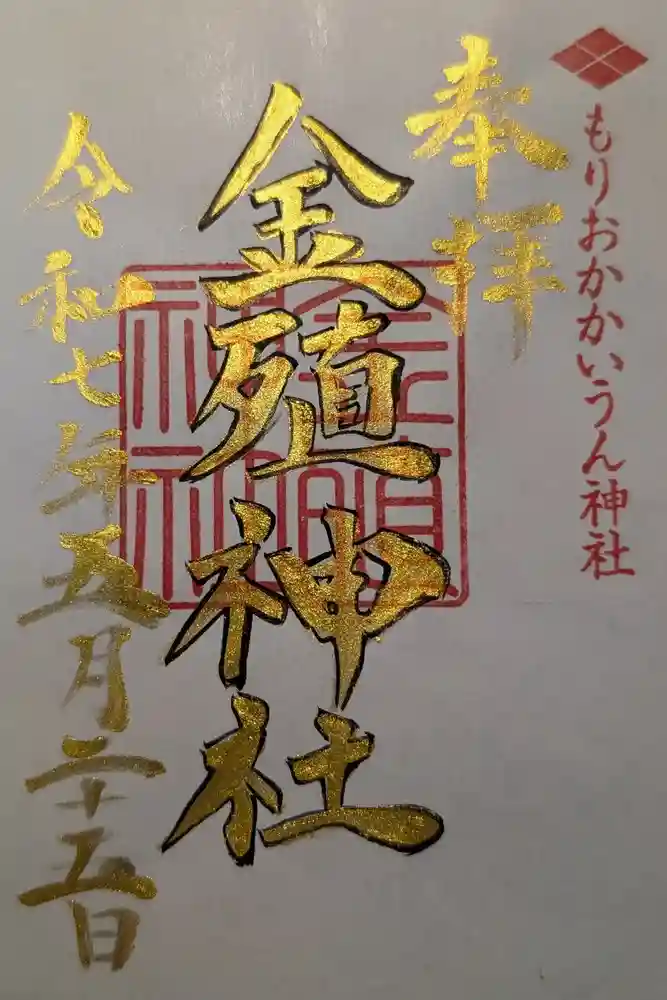 もりおかかいうん神社
奉拝
金殖神社
金殖神社
令和七年五月二十五日